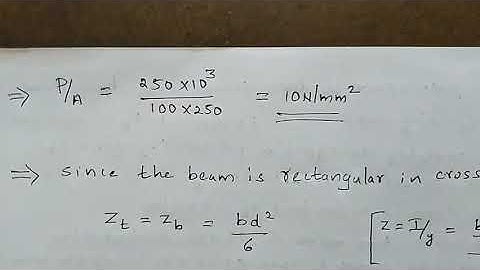 ⇒ P/A = 250×10³ / 100×250 = 10N/mm²
⇒ since the beam is rectangular in cross
Zt = Zb = bd²/6 [Z = I/y =